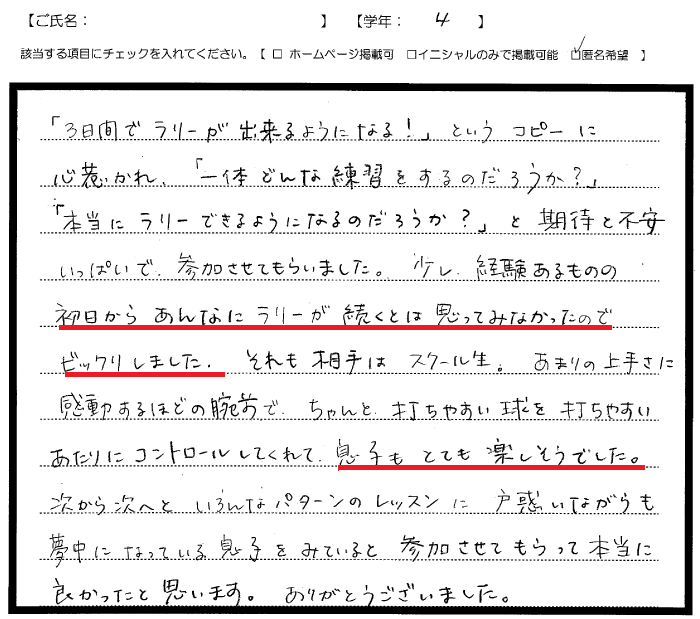 【ご氏名: 】 【学年: 4 】
該当する項目にチェックを入れてください。【 □ ホームページ掲載可 □イニシャルのみで掲載可能 ☑匿名希望 】
「3日間で ラリーが 出来るようになる!」という コピーに
心惹かれ、「一体 どんな 練習をするのだろうか?」
「本当に ラリーできるようになるのだろうか?」と 期待と不安
いっぱいで、参加させてもらいました。 少し、経験あるものの
初日から あんなに ラリーが 続くとは 思ってみなかったので
ビックリしました。 それも 相手は スクール生。 あまりの上手さに
感動するほどの腕前で、ちゃんと、打ちやすい 球を 打ちやすい
あたりに コントロールしてくれて、息子も とても 楽しそうでした。
次から次へと いろんなパターンの レッスンに 戸惑いながらも
夢中に なっている 息子を みていると 参加させて もらって 本当に
良かったと 思います。 ありがとうございました。